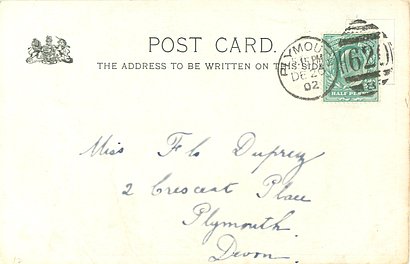 POST CARD.
THE ADDRESS TO BE WRITTEN ON THIS SIDE
PLYMOUTH
DE 02
620
HALF PENNY
Miss Flo Duprez
2 Crescent Place
Plymouth.
Devon.